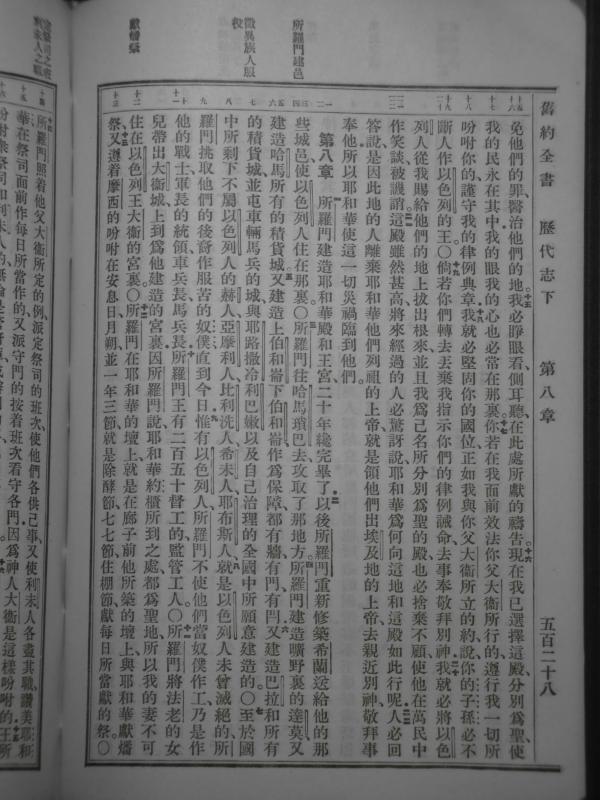 舊約全書 歷代志下 第八章 五百二十八
免他們的罪醫治他們的地我必睜眼看側耳聽在此處所獻的禱告現在我已選擇這殿分別爲聖使
我的民永在其中我的眼我的心也必常在那裏你若在我面前效法你父大衛所行的遵行我一切所
吩咐你的謹守我的律例典章我就必堅固你的國位正如我與你父大衛所立的約說你的子孫必不
斷人作以色列的王〇倘若你們轉去丟棄我指示你們的律例誡命去事奉敬拜別神我就必將以色
列人從我賜給他們的地上拔出根來並且我爲己名所分別爲聖的殿也必捨棄不顧使他在萬民中
作笑談被譏誚這殿雖然甚高將來經過的人必驚訝說耶和華爲何向這地和這殿如此行呢人必回
答說是因此地的人離棄耶和華他們列祖的上帝就是領他們出埃及地的上帝去親近別神敬拜事
奉他所以耶和華使這一切災禍臨到他們
第八章 所羅門建造耶和華殿和王宮二十年纔完畢了以後所羅門重新修築希蘭送給他的那
些城邑使以色列人住在那裏〇所羅門往哈馬瑣巴去攻取了那地方所羅門建造曠野裏的達莫又
建造哈馬所有的積貨城又建造上伯和崙下伯和崙作爲保障都有牆有門有閂又建造巴拉和所有
的積貨城並屯車輛馬兵的城與耶路撒冷利巴嫩以及自己治理的全國中所願意建造的〇至於國
中所剩下不屬以色列人的赫人亞摩利人比利洗人希未人耶布斯人就是以色列人未曾滅絕的所
羅門挑取他們的後裔作服苦的奴僕直到今日惟有以色列人所羅門不使他們當奴僕作工乃是作
他的戰士軍長的統領車兵長馬兵長所羅門王有二百五十督工的監管工人〇所羅門將法老的女
兒帶出大衛城上到爲他建造的宮裏因所羅門說耶和華約櫃所到之處都爲聖地所以我的妻不可
住在以色列王大衛的宮裏〇所羅門在耶和華的壇上就是在廊子前他所築的壇上與耶和華獻燔
祭又遵着摩西的吩咐在安息日月朔並一年三節就是除酵節七七節住棚節獻每日所當獻的祭〇
所羅門照着他父大衛所定的例派定祭司的班次使他們各供己事又使利未人各盡其職讚美耶和
華在祭司面前作每日所當作的又派守門的按着班次看守各門因爲神人大衛是這樣吩咐的王所
所羅門建邑
徵異族人服役
獻燔祭